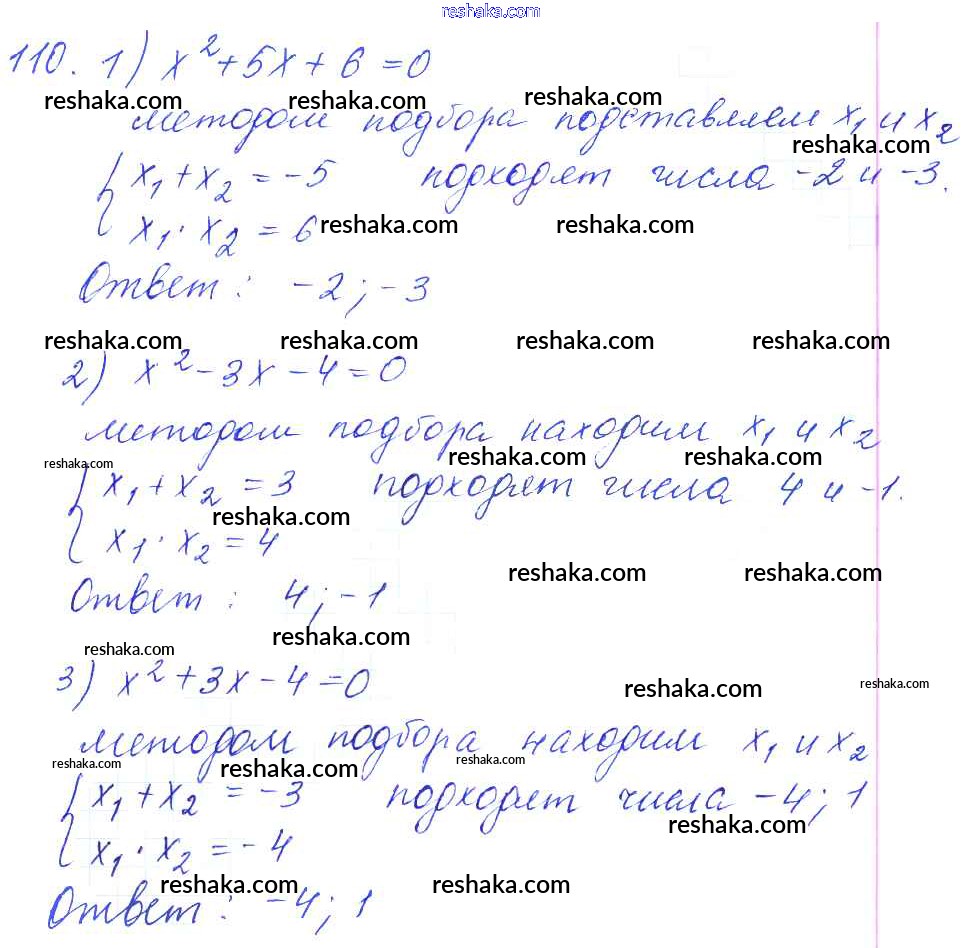 reshaka.com
110. 1) x² + 5x + 6 = 0
reshaka.com reshaka.com reshaka.com
методом подбора подставляем x₁ и x₂
reshaka.com
{ x₁ + x₂ = -5 подходят числа -2 и -3.
x₁ · x₂ = 6 reshaka.com reshaka.com
Ответ: -2; -3
reshaka.com reshaka.com reshaka.com reshaka.com
2) x² - 3x - 4 = 0
методом подбора находим x₁ и x₂
reshaka.com reshaka.com reshaka.com
{ x₁ + x₂ = 3 подходят числа 4 и -1.
reshaka.com
x₁ · x₂ = 4
reshaka.com reshaka.com
Ответ: 4; -1
reshaka.com
reshaka.com
3) x² + 3x - 4 = 0
reshaka.com reshaka.com
методом подбора находим x₁ и x₂
reshaka.com reshaka.com reshaka.com
{ x₁ + x₂ = -3 подходят числа -4; 1
reshaka.com
x₁ · x₂ = -4
reshaka.com reshaka.com
Ответ: -4; 1